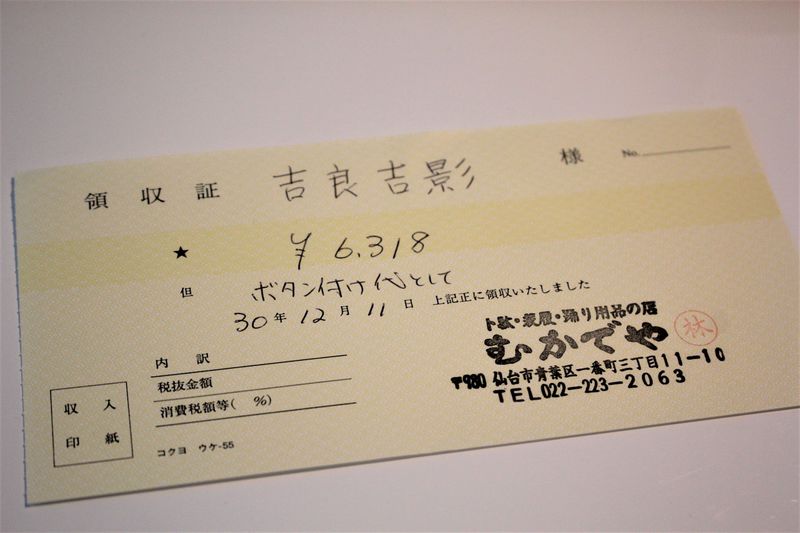 領収証 吉良吉影 様 No.
★ ¥6,318
但 ボタン付け代として
30年12月11日 上記正に領収いたしました
内訳
税抜金額
消費税額等( %)
収入
印紙
コクヨ ウケ-55
下駄・草履・踊り用品の店
むかでや
林
〒980 仙台市青葉区一番町三丁目11-10
TEL022-223-2063